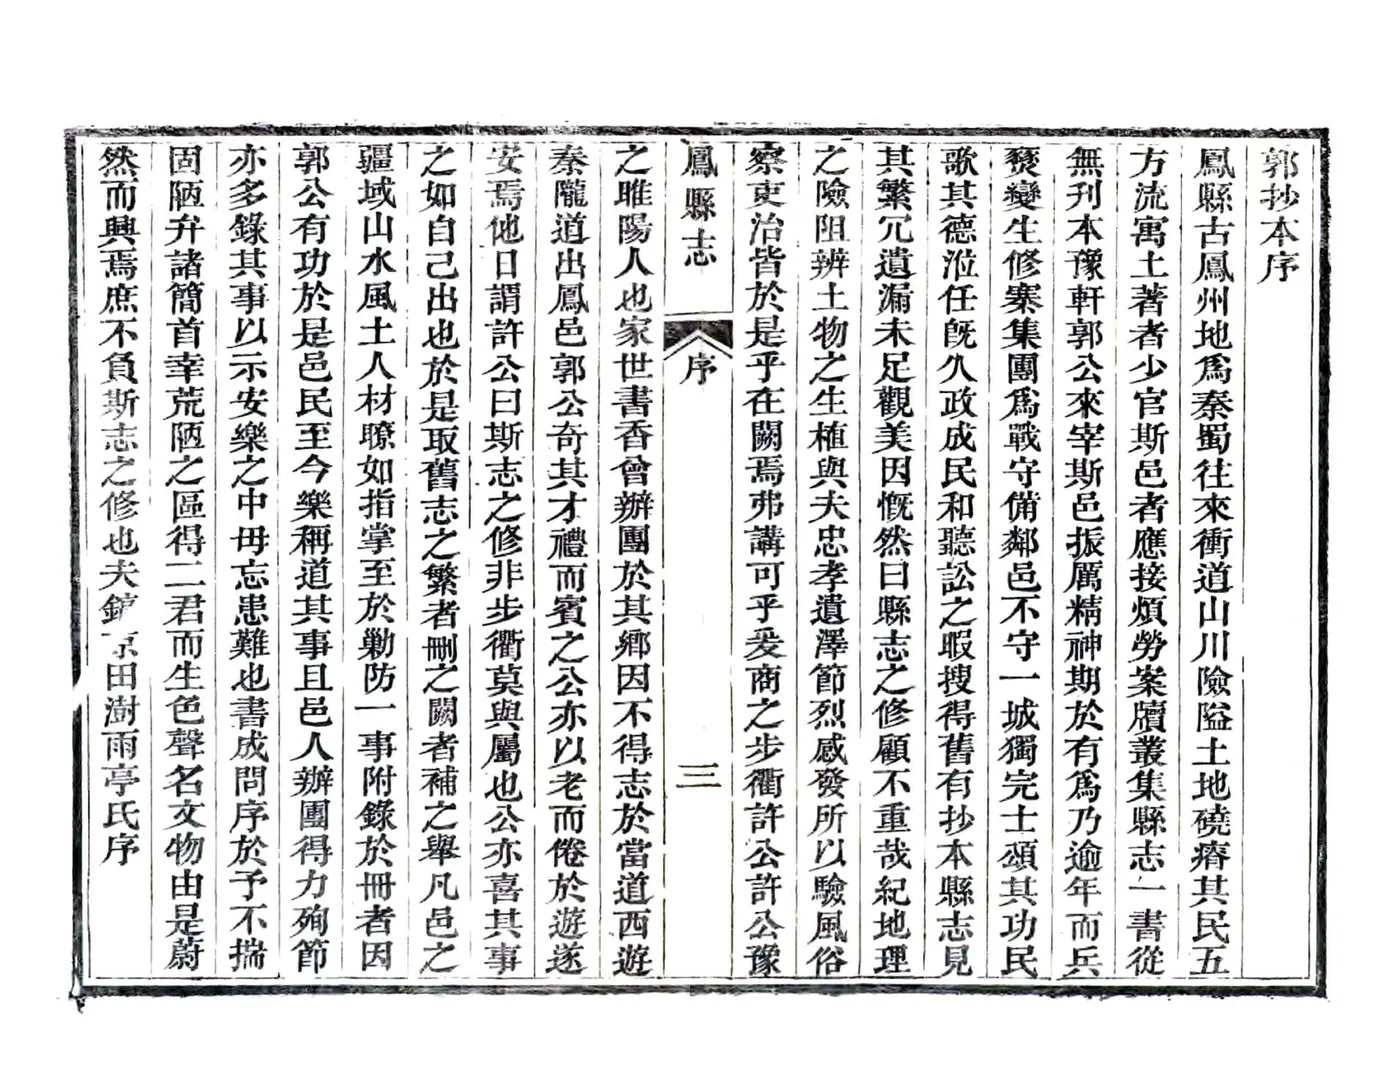 郭抄本序
鳳縣古鳳州地爲秦蜀往來衝道山川險隘土地磽瘠其民五
方流寓土著者少官斯邑者應接煩勞案牘叢集縣志一書從
無刊本豫軒郭公來宰斯邑振厲精神期於有爲乃逾年而兵
燹變生修寨集團爲戰守備鄰邑不守一城獨完士頌其功民
歌其德涖任旣久政成民和聽訟之暇搜得舊有抄本縣志見
其繁冗遺漏未足觀美因慨然曰縣志之修顧不重哉紀地理
之險阻辨土物之生植與夫忠孝遺澤節烈感發所以驗風俗
察吏治皆於是乎在闕焉弗講可乎爰商之步衢許公許公豫
鳳縣志
序
三
之睢陽人也家世書香曾辦團於其鄉因不得志於當道西遊
秦隴道出鳳邑郭公奇其才禮而賓之公亦以老而倦於遊遂
安焉他日謂許公曰斯志之修非步衢莫與屬也公亦喜其事
之如自己出也於是取舊志之繁者刪之闕者補之舉凡邑之
疆域山水風土人材瞭如指掌至於勦防一事附錄於冊者因
郭公有功於是邑民至今樂稱道其事且邑人辦團得力殉節
亦多錄其事以示安樂之中毋忘患難也書成問序於予不揣
固陋弁諸簡首幸荒陋之區得二君而生色聲名文物由是蔚
然而興焉庶不負斯志之修也夫鎬京田澍雨亭氏序